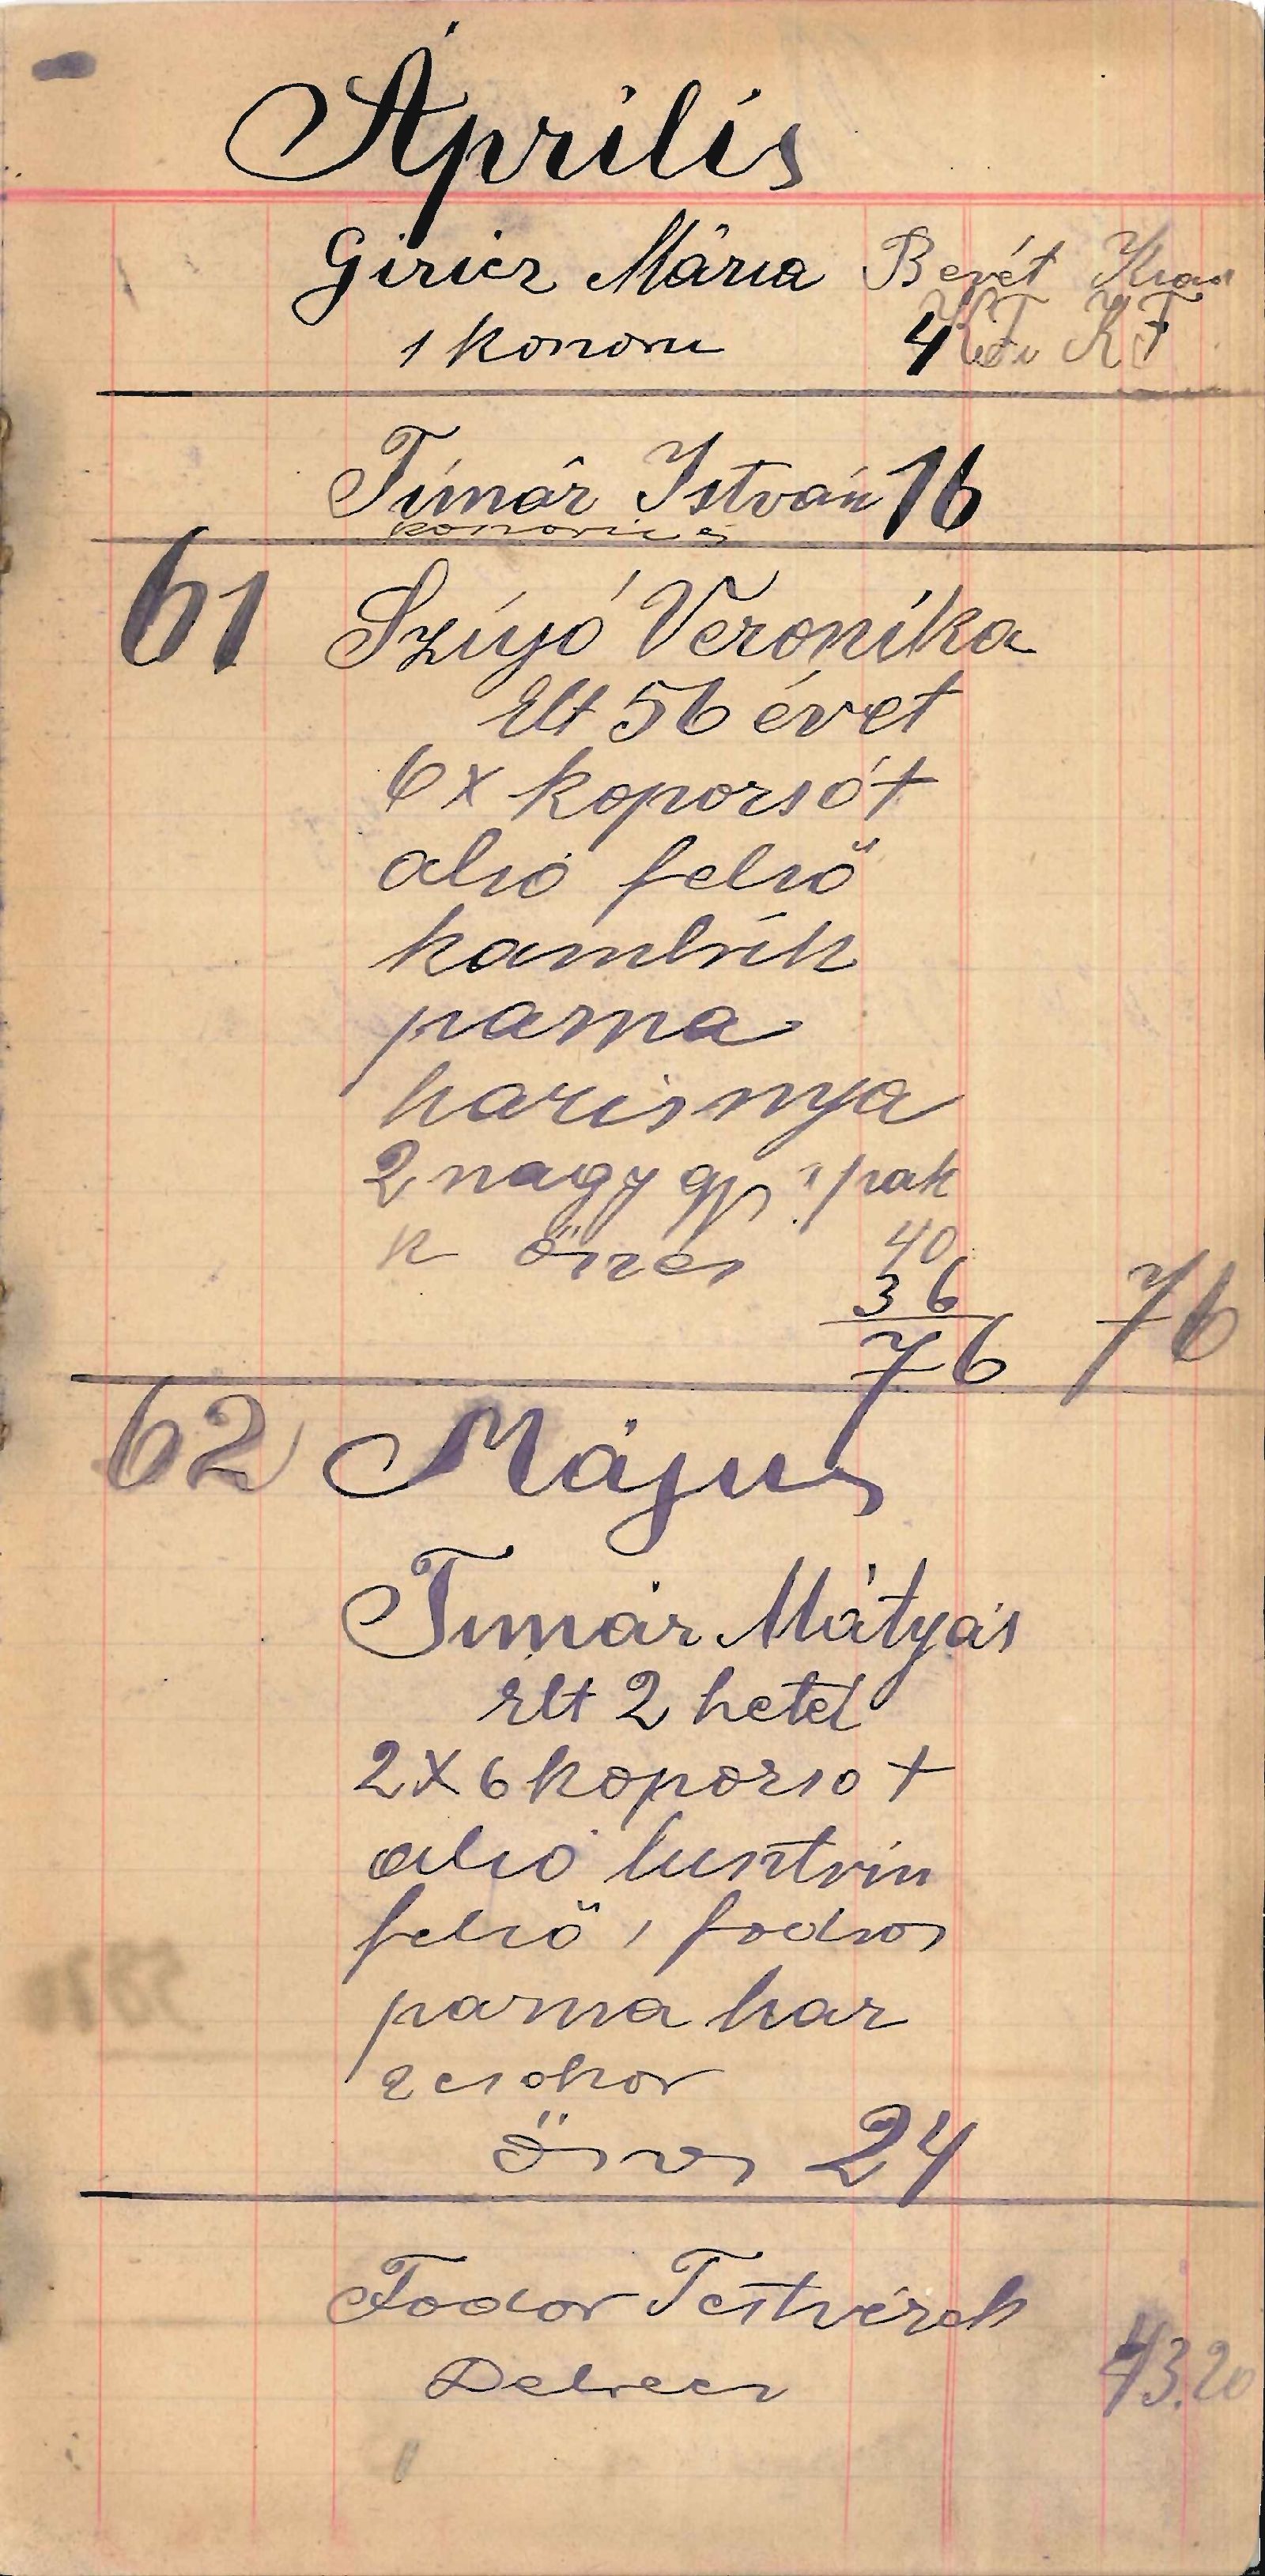 Április
Giricz Mária Bevét Kiad
1 Koszoru 4 Kr Fi Kr F
Tímár István 16
koszorú és
61 Szíjjó Veronika
élt 56 évet
6x koporsó +
alsó felső
kambrik
párna
harisnya
2 nagy gy 1 pak
k őszes 40
36
76 76
62 Május
Timár Mátyás
élt 2 hetet
2x6 koporso +
alsó lusztrin
felső, fodros
párna har
2 csokor
össz 24
Fodor Testvérek
Debrecz 43.20